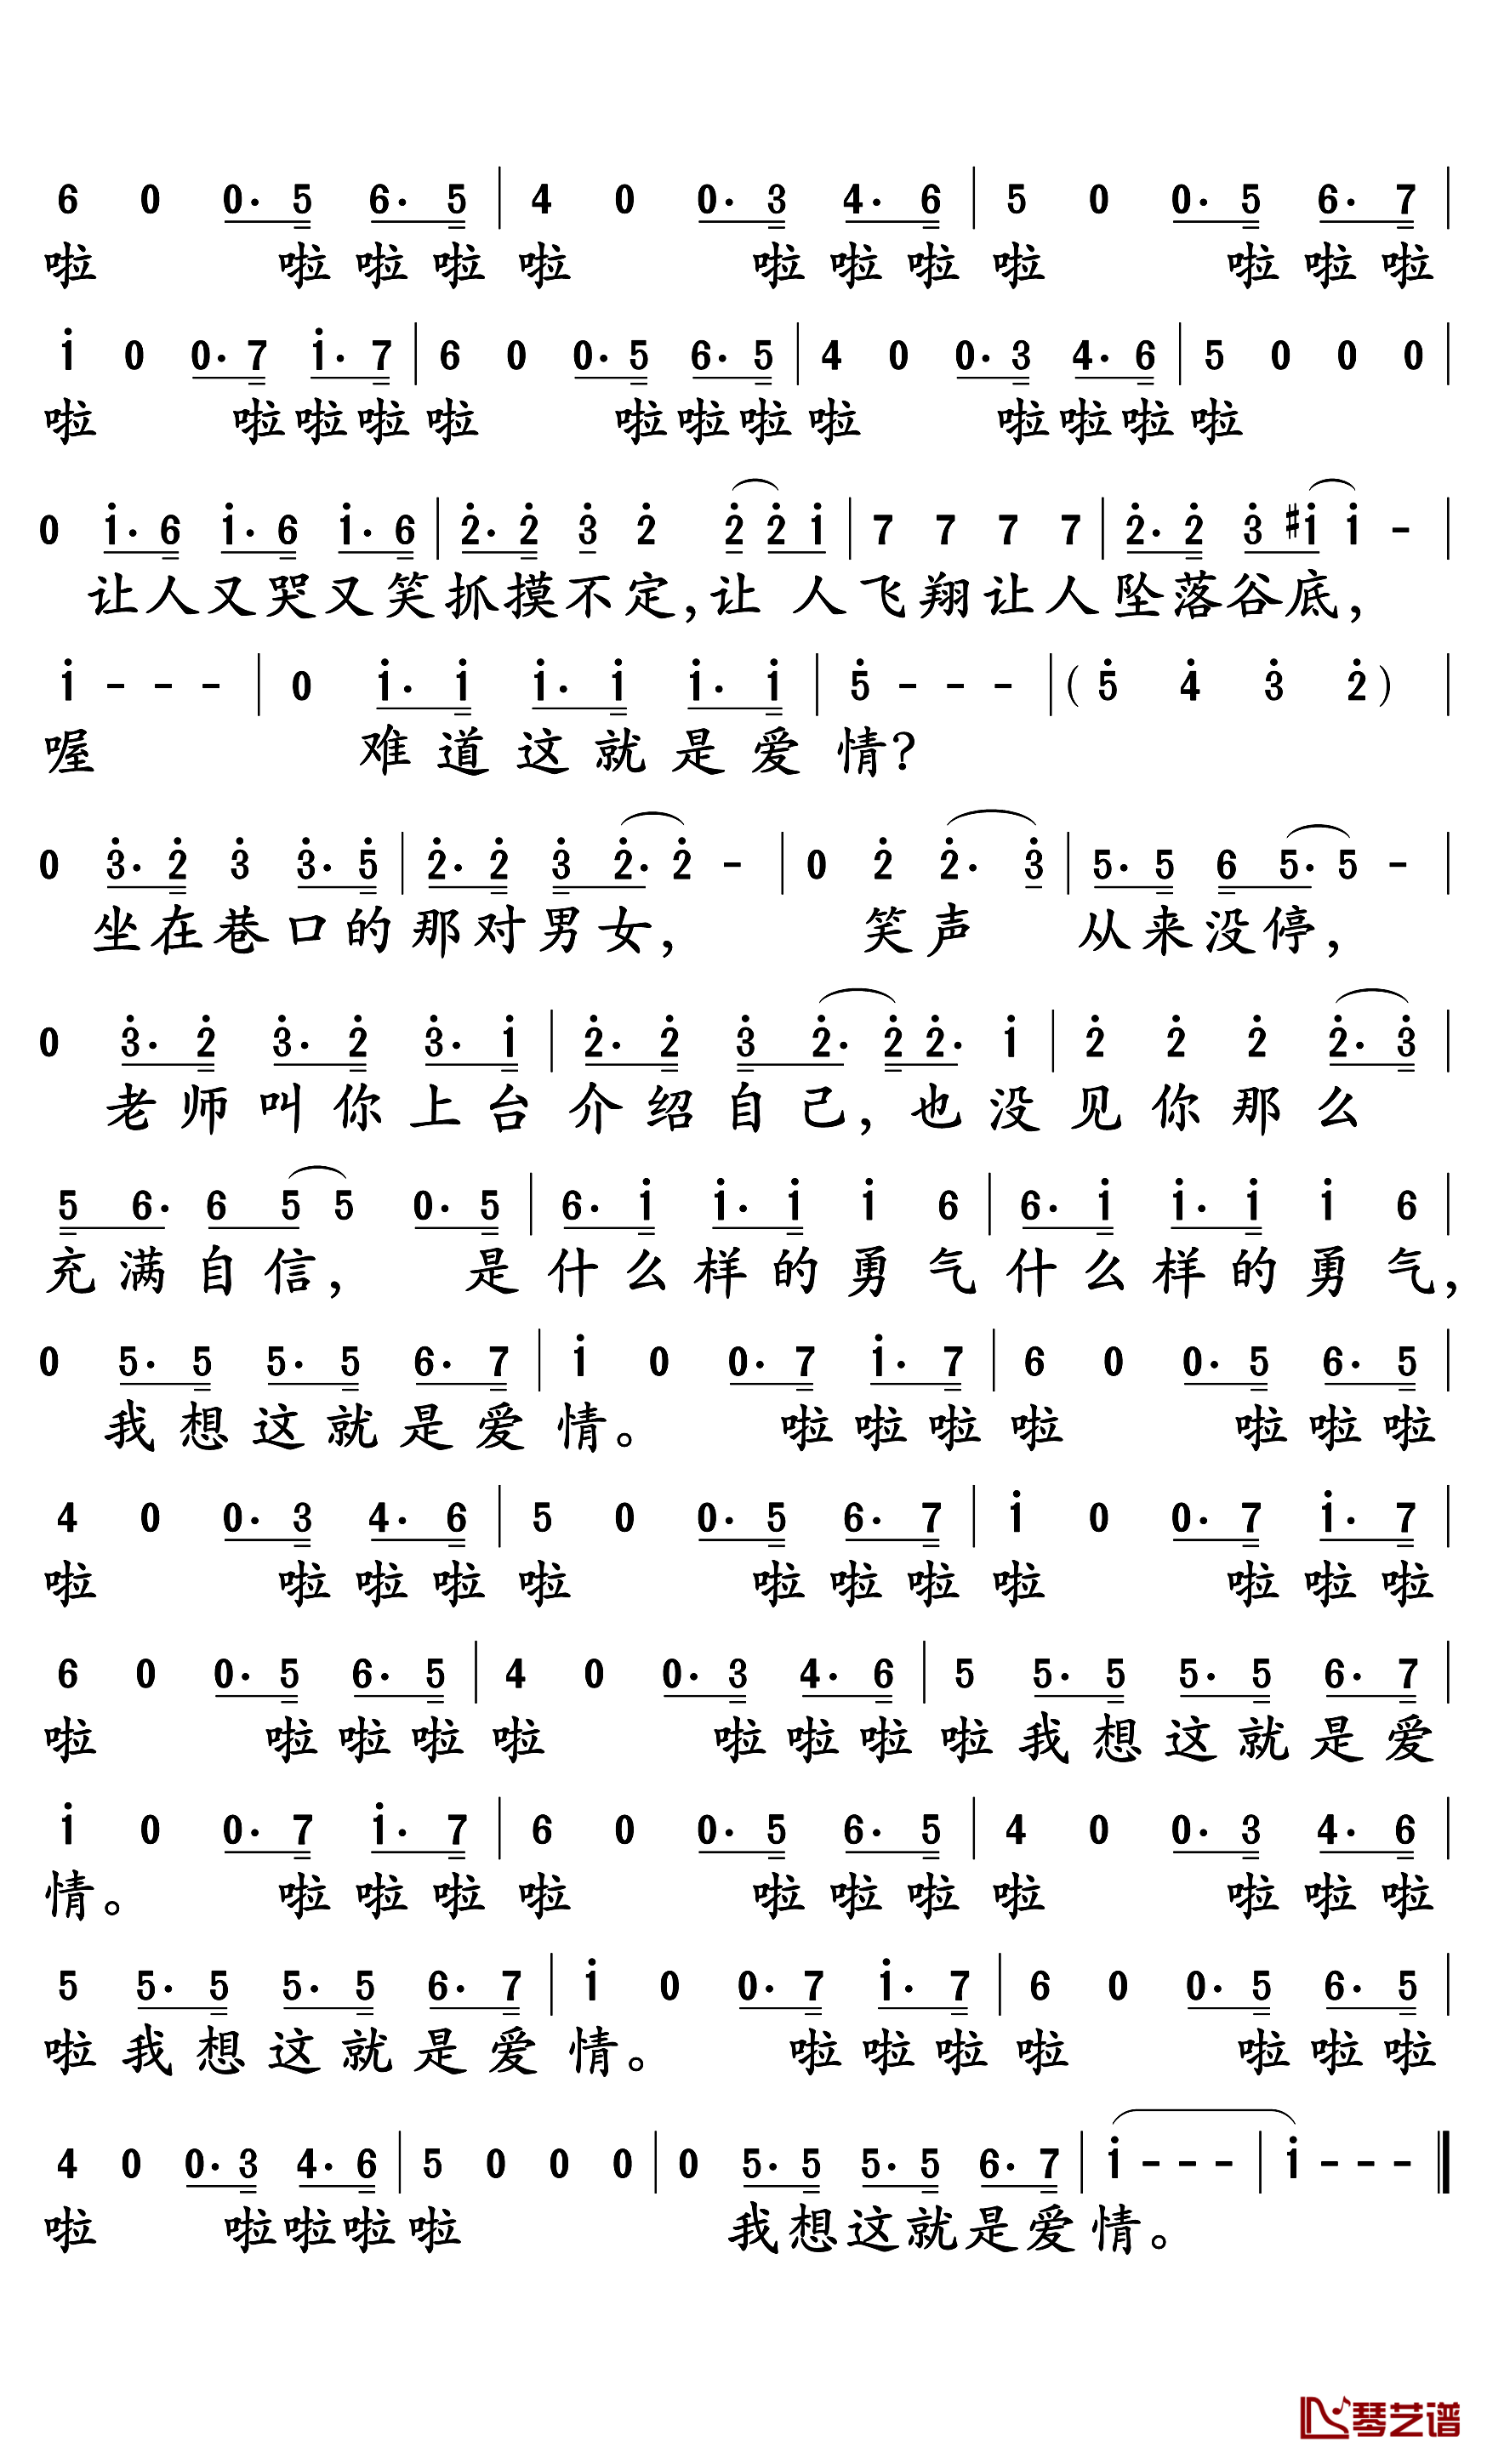 6 0 0· 5 6· 5 | 4 0 0· 3 4· 6 | 5 0 0· 5 6· 7 |
啦 啦 啦 啦 啦 啦 啦 啦 啦 啦 啦 啦
i 0 0· 7 i· 7 | 6 0 0· 5 6· 5 | 4 0 0· 3 4· 6 | 5 0 0 0 |
啦 啦啦啦 啦 啦啦啦 啦 啦啦啦 啦
0 i· 6 i· 6 i· 6 | 2· 2 3 2 2 2 i | 7 7 7 7 | 2· 2 3 #i i - |
让人又哭又笑抓摸不定,让 人飞翔让人坠落谷底,
i - - - | 0 i· i i· i i· i | 5 - - - | (5 4 3 2) |
喔 难道这就是爱情?
0 3· 2 3 3· 5 | 2· 2 3 2· 2 - | 0 2 2· 3 | 5· 5 6 5· 5 - |
坐在巷口的那对男女, 笑声 从来没停,
0 3· 2 3· 2 3· i | 2· 2 3 2· 2 2· i | 2 2 2 2· 3 |
老师叫你上台介绍自己,也没见你那么
5 6· 6 5 5 0· 5 | 6· i i· i i 6 | 6· i i· i i 6 |
充满自信, 是什么样的勇气什么样的勇气,
0 5· 5 5· 5 6· 7 | i 0 0· 7 i· 7 | 6 0 0· 5 6· 5 |
我想这就是爱情。 啦 啦 啦 啦 啦 啦 啦
4 0 0· 3 4· 6 | 5 0 0· 5 6· 7 | i 0 0· 7 i· 7 |
啦 啦 啦 啦 啦 啦 啦 啦 啦 啦 啦 啦
6 0 0· 5 6· 5 | 4 0 0· 3 4· 6 | 5 5· 5 5· 5 6· 7 |
啦 啦 啦 啦 啦 啦 啦 啦 啦我想这就是爱
i 0 0· 7 i· 7 | 6 0 0· 5 6· 5 | 4 0 0· 3 4· 6 |
情。 啦 啦 啦 啦 啦 啦 啦 啦 啦 啦 啦
5 5· 5 5· 5 6· 7 | i 0 0· 7 i· 7 | 6 0 0· 5 6· 5 |
啦我想这就是爱情。 啦 啦 啦 啦 啦 啦 啦
4 0 0· 3 4· 6 | 5 0 0 0 | 0 5· 5 5· 5 6· 7 | i - - - | i - - - ‖
啦 啦啦啦 啦 我想这就是爱情。
琴艺谱